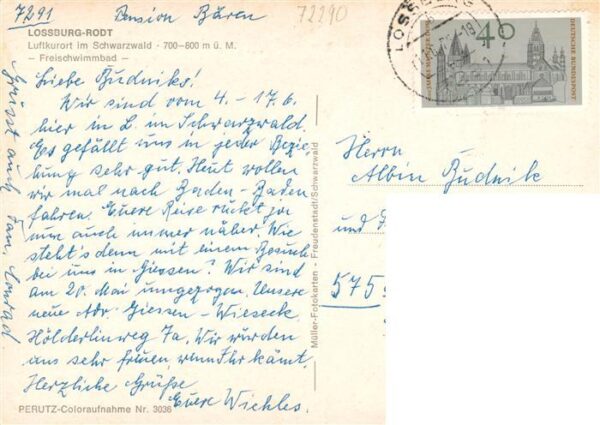 7291 Pension Bären 72290
LOSSBURG-RODT
Luftkurort im Schwarzwald · 700–800 m ü. M.
– Freischwimmbad –
Liebe Budniks!
Wir sind vom 4. – 17.6.
hier in L. im Schwarzwald.
Es gefällt uns in jeder Bezie-
hung sehr gut. Heut wollen
wir mal nach Baden-Baden
fahren. Euere Reise rückt ja
nun auch immer näher. Wie
steht's denn mit einem Besuch
bei uns in Giessen? Wir sind
am 20. Mai umgezogen. Unsere
neue Adr. Giessen-Wieseck
Hölderlinweg 7a. Wir würden
uns sehr freuen, wenn Ihr kämt.
Herzliche Grüße
Euere Wichles.
PERUTZ-Coloraufnahme Nr. 3036
Grüsst auch Fam. Conrad
Müller-Fotokarten – Freudenstadt/Schwarzwald
LOSSBURG
40
DEUTSCHE BUNDESPOST
Herrn
Albin Budnik
und
575